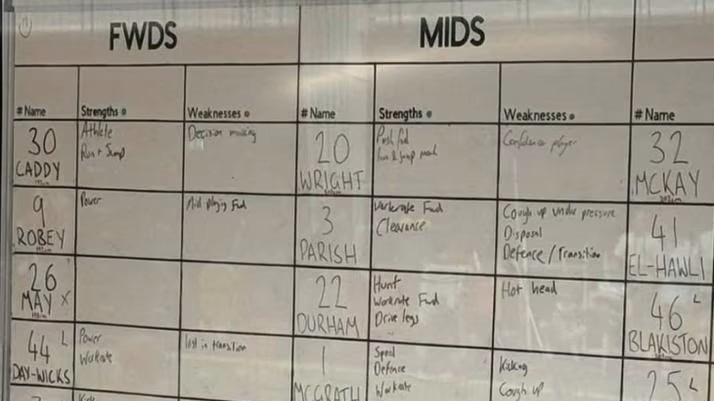 FWDS
MIDS
# Name
Strengths
Weaknesses
# Name
Strengths
Weaknesses
# Name
30
CADDY
Athlete
Run + Jump
Decision making
20
WRIGHT
Push fwd
run & jump
Confidence player
32
MCKAY
9
ROBEY
Power
Mid playing Fwd
3
PARISH
Workrate Fwd
Clearance
Cough up under pressure
Disposal
Defence / Transition
41
EL-HAWLI
26
MAY X
22
DURHAM
Hunt
Workrate Fwd
Drive legs
Hot head
46 L
BLAKISTON
44 L
DAY-WICKS
Power
Workrate
lost in transition
1
MCGRATH
Speed
Defence
Workrate
Kicking
Cough up
25 L